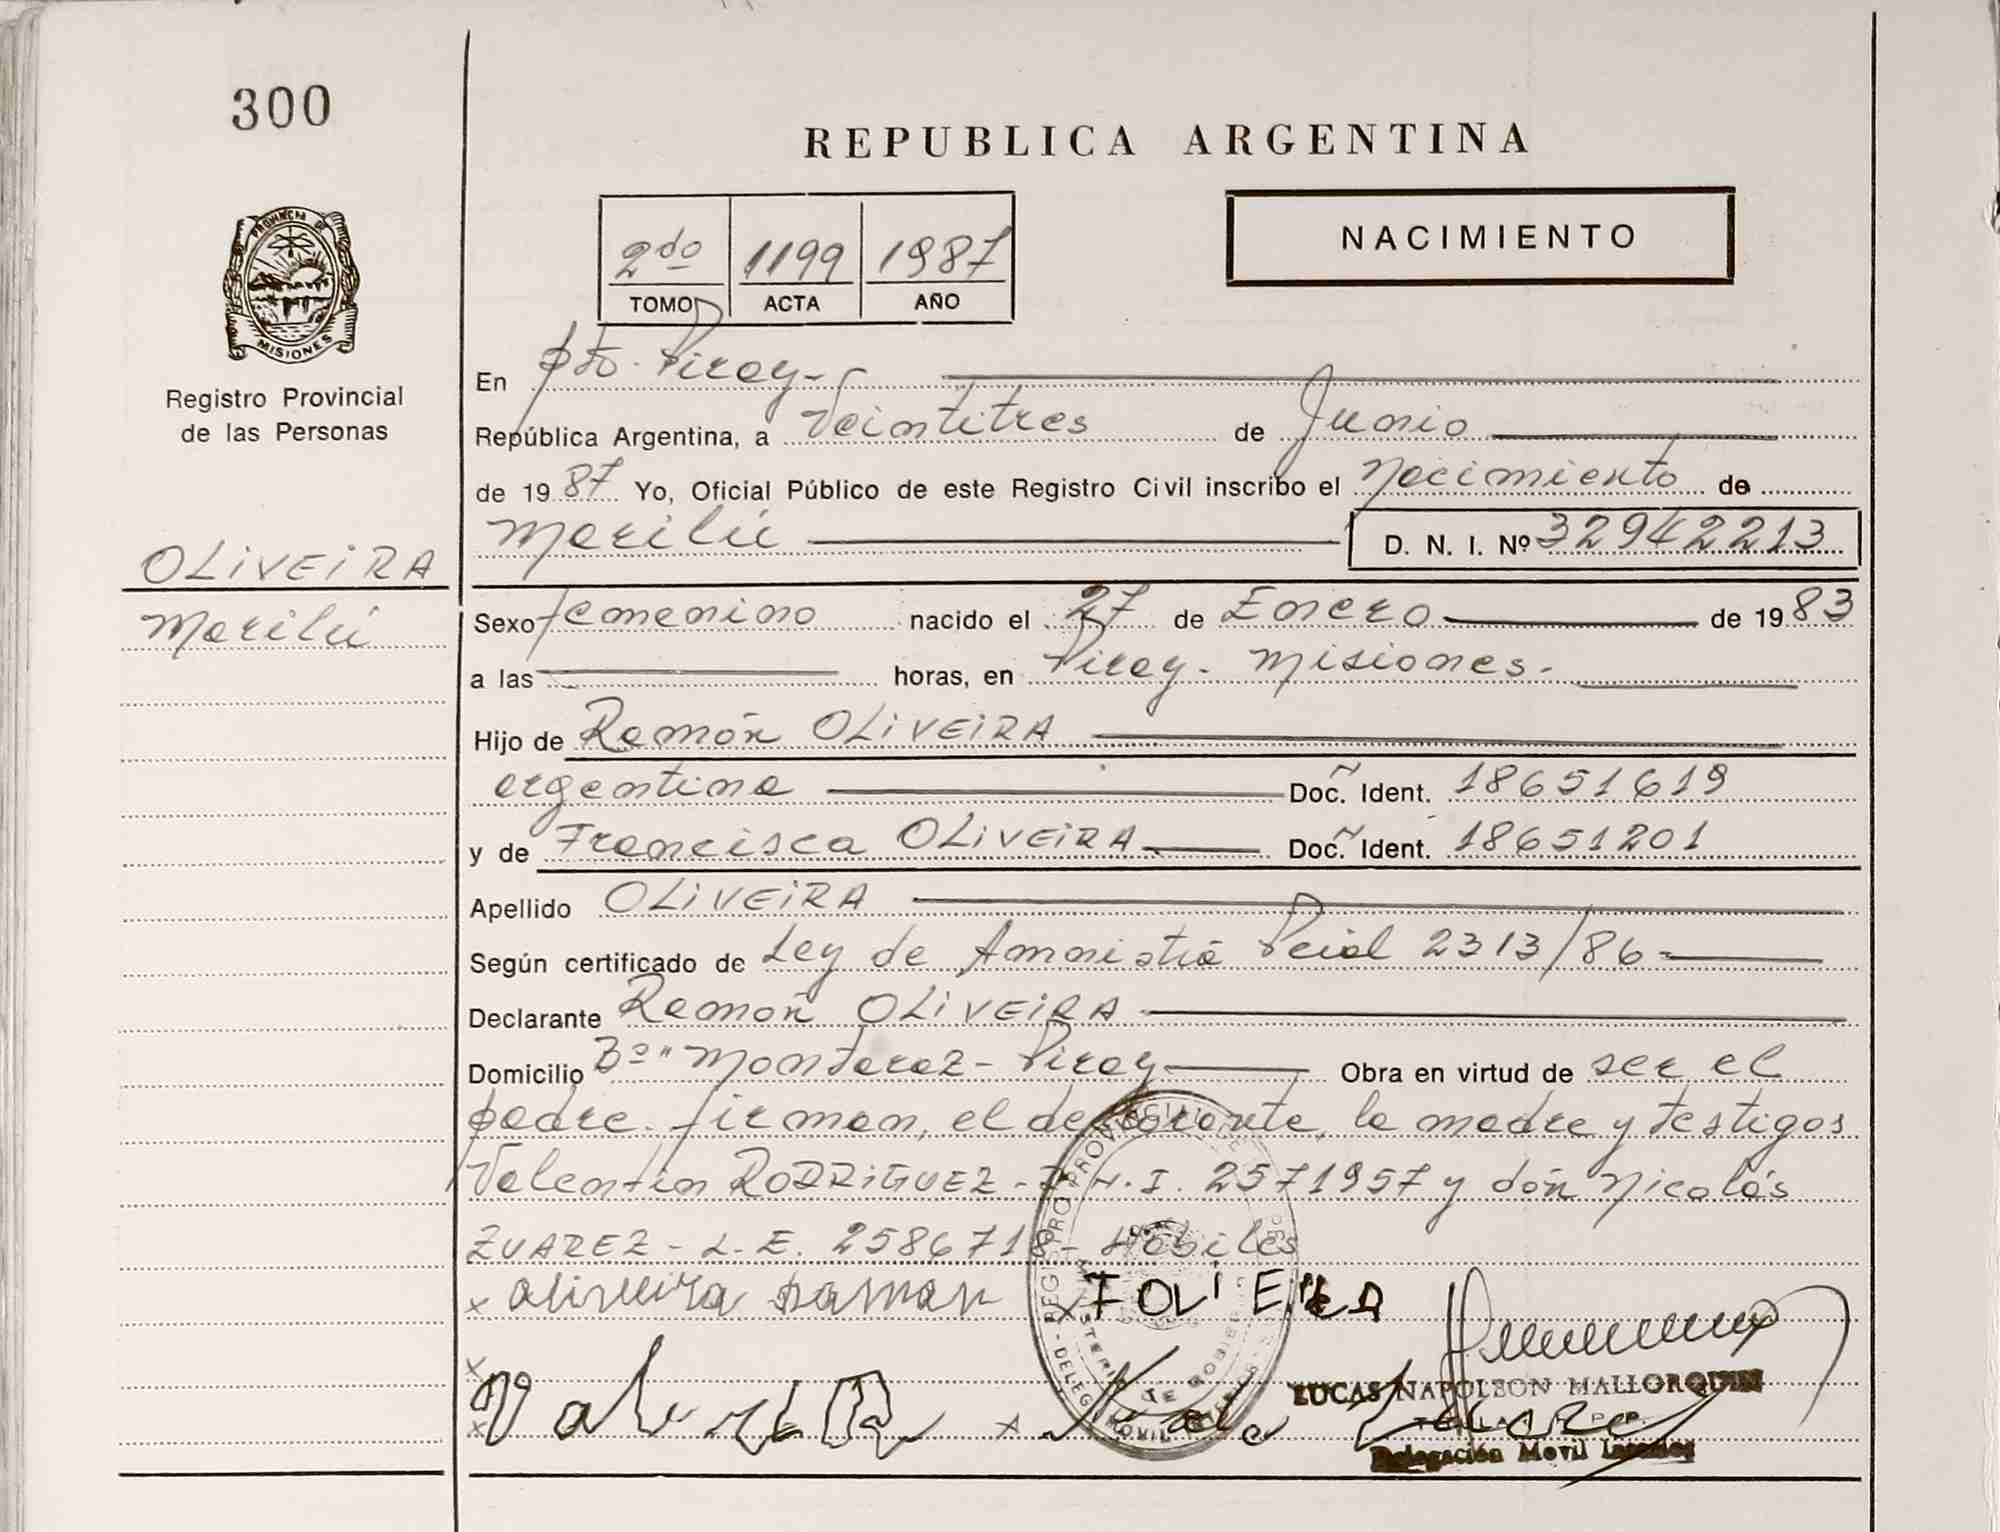 300
REPUBLICA ARGENTINA
2do 1199 1987
TOMO ACTA AÑO
NACIMIENTO
PROVINCIA DE
MISIONES
Registro Provincial
de las Personas
OLIVEIRA
Marilú
En Pto. Piray-
República Argentina, a Veintitres de Junio
de 1987 Yo, Oficial Público de este Registro Civil inscribo el Nacimiento de
Marilú D. N. I. Nº 32942213
Sexo femenino nacido el 27 de Enero de 1983
a las horas, en Piray - Misiones.
Hijo de Ramón OLIVEIRA
argentina Doc. Ident. 18651619
y de Francisca OLIVEIRA Doc. Ident. 18651201
Apellido OLIVEIRA
Según certificado de Ley de Amnistía Pcial 2313/86
Declarante Ramón OLIVEIRA
Domicilio Bº" - Piray Obra en virtud de ser el
padre. firman, el declarante, la madre y testigos
Valentín RODRIGUEZ - D.N.I. 2571957 y don Nicolás
ZUAREZ - L.E. 2586718 - Hábiles
x oliveira ramon x
LUCAS NAPOLEON MALLORQUIN
x
x x
Delegación Movil